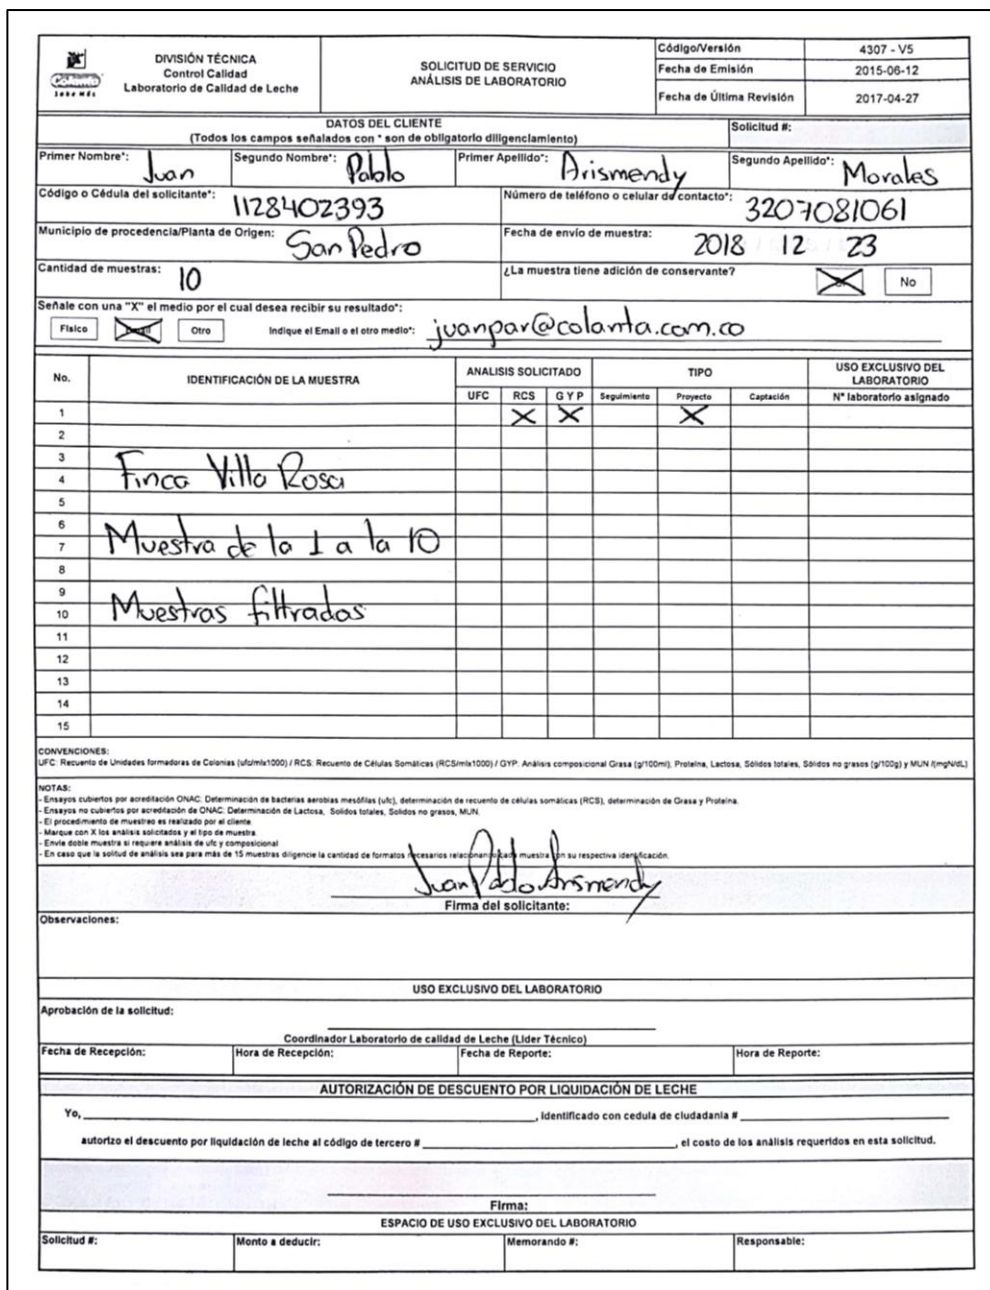 Colanta
Sabe Más
DIVISIÓN TÉCNICA
Control Calidad
Laboratorio de Calidad de Leche
SOLICITUD DE SERVICIO
ANÁLISIS DE LABORATORIO
Código/Versión 4307 - V5
Fecha de Emisión 2015-06-12
Fecha de Última Revisión 2017-04-27
DATOS DEL CLIENTE
(Todos los campos señalados con * son de obligatorio diligenciamiento)
Solicitud #:
Primer Nombre*: Juan Segundo Nombre*: Pablo Primer Apellido*: Arismendy Segundo Apellido*: Morales
Código o Cédula del solicitante*: 1128402393 Número de teléfono o celular de contacto*: 3207081061
Municipio de procedencia/Planta de Origen: San Pedro Fecha de envío de muestra: 2018 12 23
Cantidad de muestras: 10 ¿La muestra tiene adición de conservante? No
Señale con una "X" el medio por el cual desea recibir su resultado*:
Físico Otro Indique el Email o el otro medio*: juanpar@colanta.com.co
No. IDENTIFICACIÓN DE LA MUESTRA ANALISIS SOLICITADO TIPO USO EXCLUSIVO DEL LABORATORIO
UFC RCS G Y P Seguimiento Proyecto Captación N° laboratorio asignado
1 X X X
2
3
4 Finca Villa Rosa
5
6
7 Muestra de la 1 a la 10
8
9
10 Muestras filtradas
11
12
13
14
15
CONVENCIONES:
UFC: Recuento de Unidades formadoras de Colonias (ufc/mlx1000) / RCS: Recuento de Células Somáticas (RCS/mlx1000) / GYP: Análisis composicional Grasa (g/100ml), Proteína, Lactosa, Sólidos totales, Sólidos no grasos (g/100g) y MUN /(mgN/dL)
NOTAS:
- Ensayos cubiertos por acreditación ONAC: Determinación de bacterias aerobias mesófilas (ufc), determinación de recuento de células somáticas (RCS), determinación de Grasa y Proteína.
- Ensayos no cubiertos por acreditación de ONAC: Determinación de Lactosa, Solidos totales, Solidos no grasos, MUN.
- El procedimiento de muestreo es realizado por el cliente.
- Marque con X los análisis solicitados y el tipo de muestra.
- Envíe doble muestra si requiere análisis de ufc y composicional
- En caso que la solitud de análisis sea para más de 15 muestras diligencie la cantidad de formatos necesarios relacionando cada muestra con su respectiva identificación.
Juan Pablo Arismendy
Firma del solicitante:
Observaciones:
USO EXCLUSIVO DEL LABORATORIO
Aprobación de la solicitud:
Coordinador Laboratorio de calidad de Leche (Lider Técnico)
Fecha de Recepción: Hora de Recepción: Fecha de Reporte: Hora de Reporte:
AUTORIZACIÓN DE DESCUENTO POR LIQUIDACIÓN DE LECHE
Yo, , identificado con cedula de ciudadanía #
autorizo el descuento por liquidación de leche al código de tercero # , el costo de los análisis requeridos en esta solicitud.
Firma:
ESPACIO DE USO EXCLUSIVO DEL LABORATORIO
Solicitud #: Monto a deducir: Memorando #: Responsable: